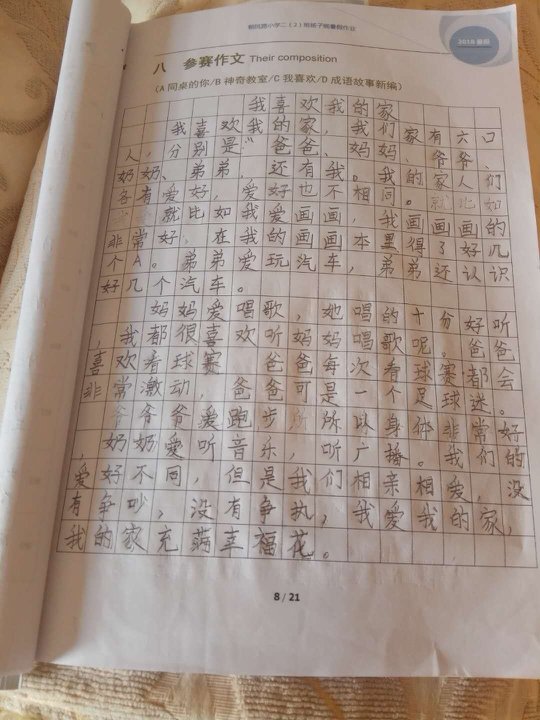 朝凤路小学二（2）班孩子缤暑假作业
2018 暑假
八 参赛作文 Their composition
（A 同桌的你/B 神奇教室/C 我喜欢/D 成语故事新编）
我喜欢我的家
我喜欢我的家，我们家有六口
人，分别是：爸爸、妈妈、爷爷、
奶奶、弟弟，还有我。我的家人们
各有爱好，爱好也不相同。就比如
就比如我爱画画，我画画画的
非常好，在我的画画本里得了好几
个A。弟弟爱玩汽车，弟弟还认识
好几个汽车。
妈妈爱唱歌，她唱的十分好听
，我都很喜欢听妈妈唱歌呢。爸爸
喜欢看球赛，爸爸每次看球赛都会
非常激动，爸爸可是一个足球迷。
爷爷爷爱跑步，所所以身体非常好
，奶奶爱听音乐，听广播。我们的
爱好不同，但是我们相亲相爱，没
有争吵，没有争执，我爱我的家，
我的家充满幸福花。
8 / 21